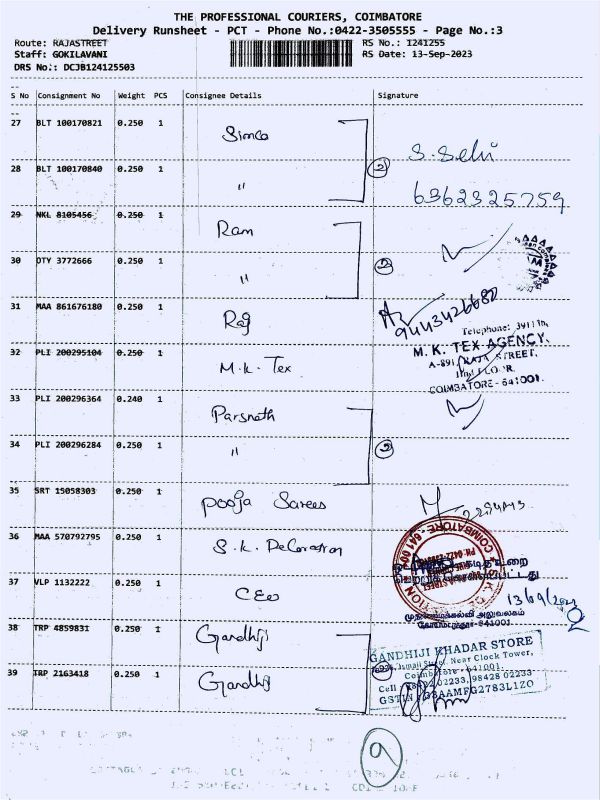 THE PROFESSIONAL COURIERS, COIMBATORE
Delivery Runsheet - PCT - Phone No.:0422-3505555 - Page No.:3
Route: RAJASTREET
RS No.: I241255
Staff: GOKILAVANI
RS Date: 13-Sep-2023
DRS No.: DCJB124125503
S No Consignment No Weight PCS Consignee Details Signature
27 BLT 100170821 0.250 1 Simco
28 BLT 100170840 0.250 1 "
② S. Selvi
6362325759
29 NKL 8105456 0.250 1 Ram
30 OTY 3772666 0.250 1 "
②
31 MAA 861676180 0.250 1 Raj
9443426682
32 PLI 200295104 0.250 1 M.K. Tex
Telephone: 
M. K. TEX AGENCY,
STREET,
FLOOR,
COIMBATORE - 641001.
33 PLI 200296364 0.240 1 Parsnath
34 PLI 200296284 0.250 1 "
②
35 SRT 15058303 0.250 1 Pooja Sarees
36 MAA 570792795 0.250 1 S.K. Decoration
COIMBATORE - 641 001
37 VLP 1132222 0.250 1 CEO
முதன்மைக்கல்வி அலுவலகம்
கோயம்புத்தூர்-641001
38 TRP 4859831 0.250 1 Gandhiji
39 TRP 2163418 0.250 1 Gandhiji
GANDHIJI KHADAR STORE
Ismail Street, Near Clock Tower,
Coimbatore - 641001.
Cell : 02233, 98428 02233
GSTIN : 33AAMFG2783L1ZO
9